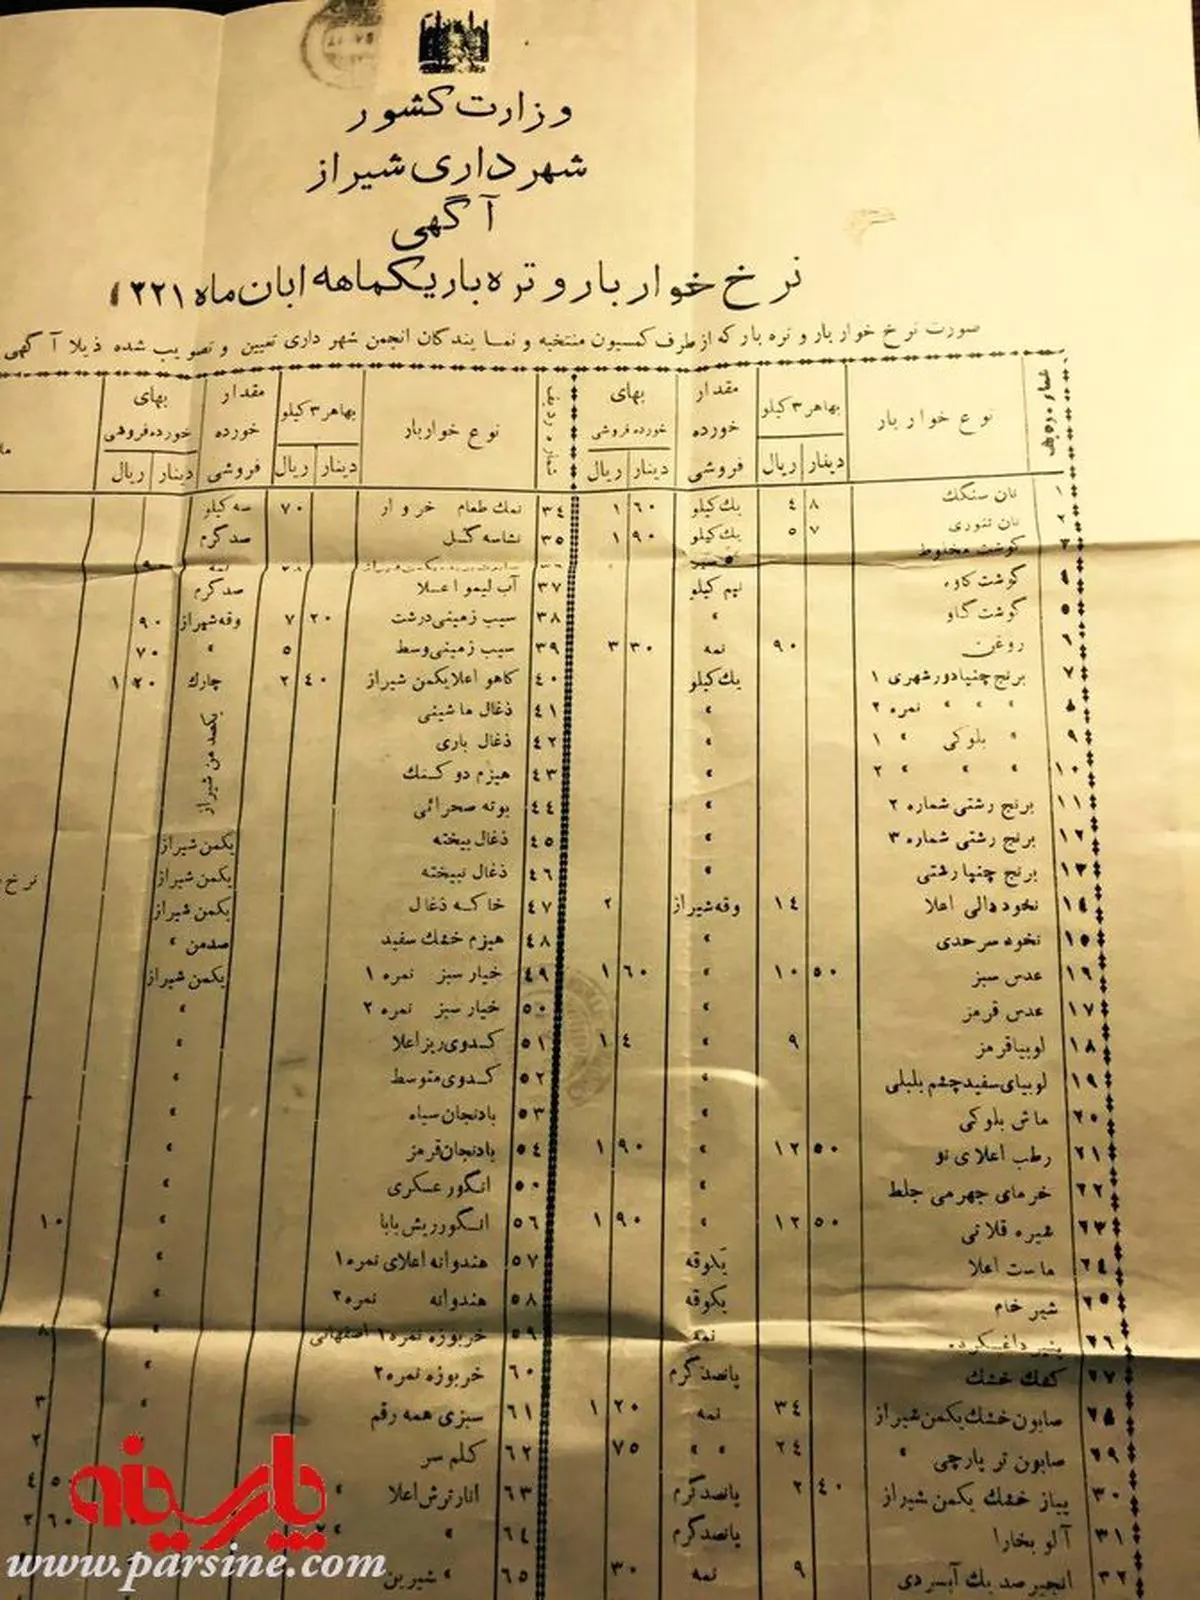 وزارت کشور
شهرداری شیراز
آگهی
نرخ خواربار و تره بار یکماهه ابان ماه ۱۳۲۱
صورت نرخ خوار بار و تره بار که از طرف کمسیون منتخبه و نمایندگان انجمن شهرداری تعیین و تصویب شده ذیلا آگهی
نوع خواربار بهاهر ۳ کیلو مقدار خورده فروشی بهای خورده فروشی نوع خواربار بهاهر ۳ کیلو مقدار خورده فروشی بهای خورده فروشی
دینار ریال دینار ریال دینار ریال دینار ریال
۱ نان سنگک ۸ ۴ یك کیلو ۶۰ ۱ ۳۴ نمك طعام خروار ۷۰ سه کیلو
۲ نان تنوری ۷ ۵ یك کیلو ۹۰ ۱ ۳۵ نشاسه گل صدگرم
۳ گوشت مخلوط
۴ گوشت کاوه نیم کیلو ۳۷ آب لیمو اعلا صدگرم
۵ گوشت گاو » ۳۸ سیب زمینی درشت ۲۰ ۷ وقه شیراز ۹۰
۶ روغن ۹۰ نمه ۳۰ ۳ ۳۹ سیب زمینی وسط ۵ » ۷۰
۷ برنج چنپا دور شهری ۱ یك کیلو ۴۰ کاهو اعلا یکمن شیراز ۴۰ ۲ چارك ۲۰ ۱
۸ » » » نمره ۲ » ۴۱ ذغال ماشینی یکصد من شیراز
۹ » بلوکی » ۱ » ۴۲ ذغال باری
۱۰ » » » ۲ » ۴۳ هیزم دو کتك
۱۱ برنج رشتی شماره ۲ » ۴۴ بوته صحرائی
۱۲ برنج رشتی شماره ۳ » ۴۵ ذغال بیخته یکمن شیراز
۱۳ برنج چنپا رشتی » ۴۶ ذغال نبیخته یکمن شیراز
۱۴ نخود دالی اعلا ۱۴ وقه شیراز ۲ ۴۷ خاکه ذغال یکمن شیراز
۱۵ نخود سرحدی » ۴۸ هیزم خشك سفید صدمن »
۱۶ عدس سبز ۵۰ ۱۰ » ۶۰ ۱ ۴۹ خیار سبز نمره ۱ یکمن شیراز
۱۷ عدس قرمز » ۵۰ خیار سبز نمره ۲ »
۱۸ لوبیا قرمز ۹ » ۴ ۱ ۵۱ کدوی ریز اعلا »
۱۹ لوبیای سفید چشم بلبلی » ۵۲ کدوی متوسط »
۲۰ ماش بلوکی » ۵۳ بادنجان سیاه »
۲۱ رطب اعلای نو ۵۰ ۱۲ » ۹۰ ۱ ۵۴ بادنجان قرمز »
۲۲ خرمای جهرمی جلط » ۵۰ انگور عسکری »
۲۳ شیره قلاتی ۵۰ ۱۲ » ۹۰ ۱ ۵۶ انگور ریش بابا » ۱۰
۲۴ ماست اعلا یکوقه ۵۷ هندوانه اعلای نمره ۱ »
۲۵ شیر خام یکوقه ۵۸ هندوانه نمره ۲ »
۲۶ پنیر داغکرده نمه ۵۹ خربوزه نمره ۱ اصفهانی » ۸
۲۷ کشك خشك پانصدگرم ۶۰ خربوزه نمره ۲ »
۲۸ صابون خشك یکمن شیراز ۳۴ نمه ۲۰ ۱ ۶۱ سبزی همه رقم » ۳
۲۹ صابون تر پارچی » ۲۴ » » ۷۵ ۶۲ کلم سر ۲
۳۰ پیاز خشك یکمن شیراز ۴۰ ۲ پانصدگرم ۶۳ انار ترش اعلا » ۵۰ ۴
۳۱ آلو بخارا پانصدگرم ۶۴ » ۶۰ ۲
۳۲ انجیر صد یك آبسردی ۹ نمه ۳۰ ۶۵ » شیرین
پارسینه
www.parsine.com